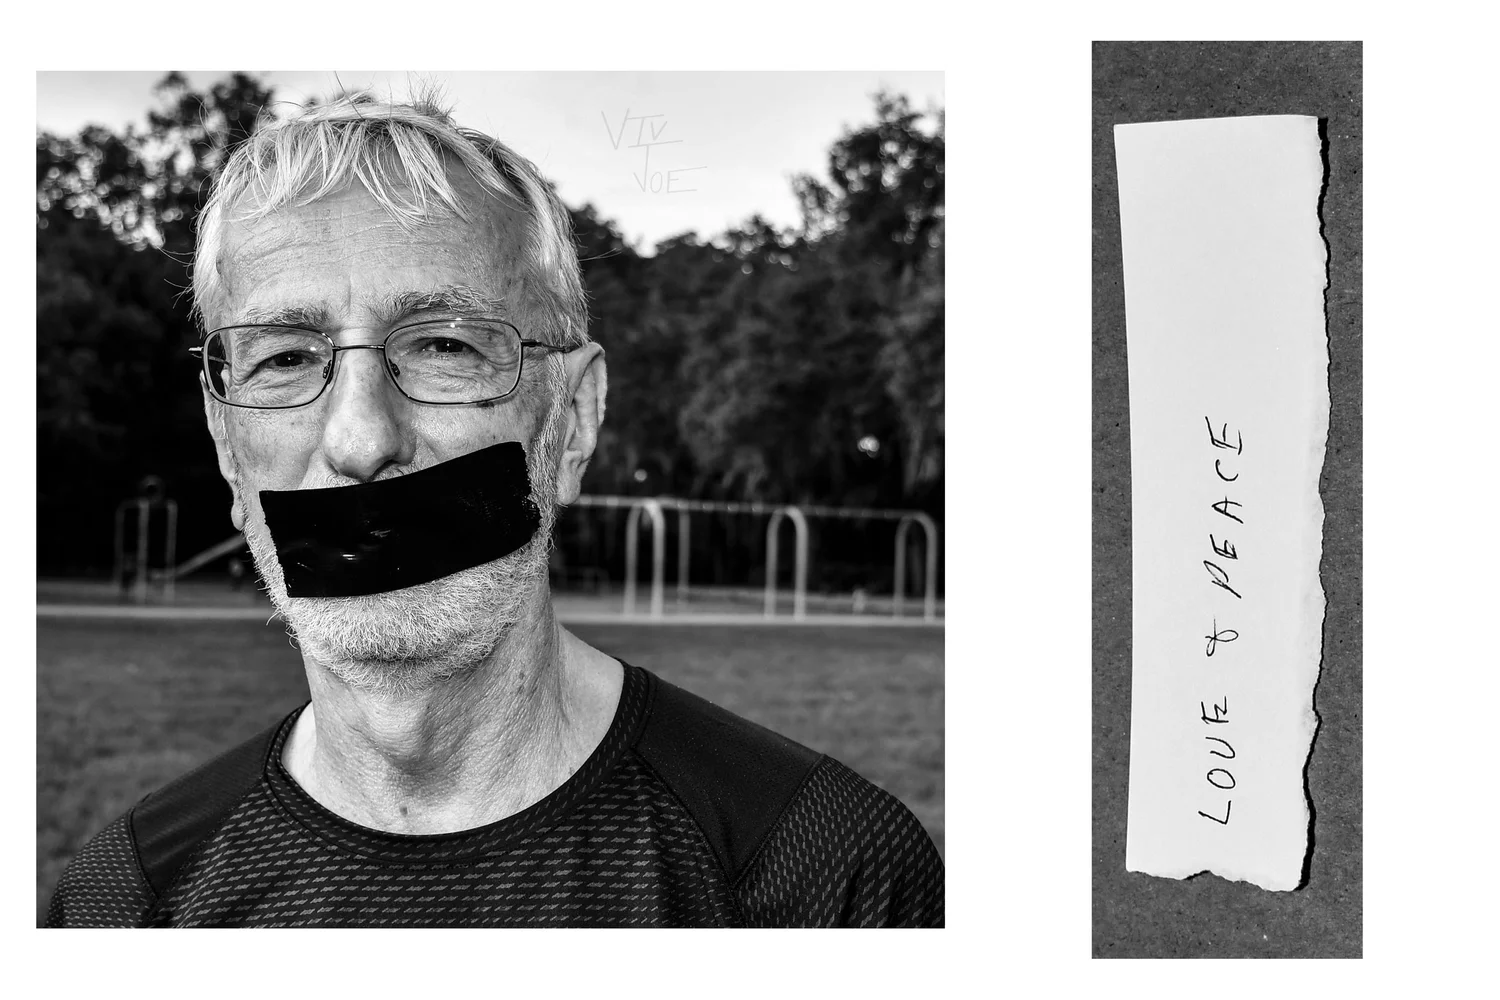 VIV
JOE
LOVE & PEACE